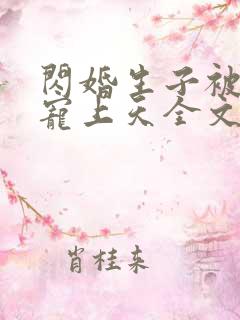 閃婚生子被
寵上天全文
肖桂來